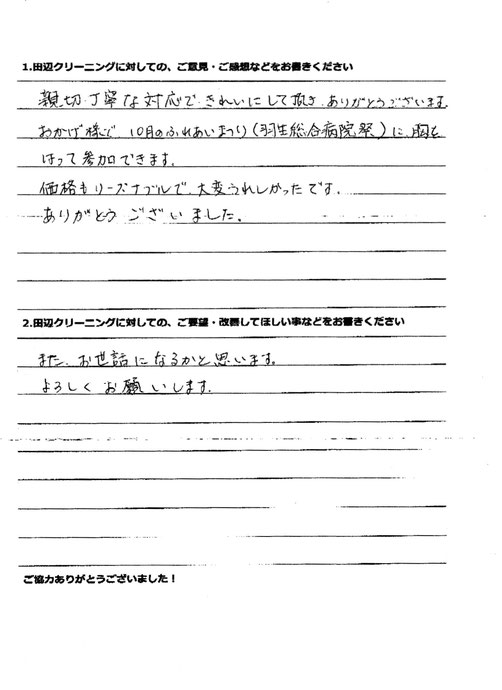 1.田辺クリーニングに対しての、ご意見・ご感想などをお書きください
親切・丁寧な対応で、きれいにして頂き、ありがとうございます。
おかげ様で 10月のふれあいまつり(羽生総合病院祭)に、胸を
はって参加できます。
価格もリーズナブルで、大変うれしかったです。
ありがとう ございました。
2.田辺クリーニングに対しての、ご要望・改善してほしい事などをお書きください
また、お世話になるかと思います。
よろしく お願いします。
ご協力ありがとうございました！